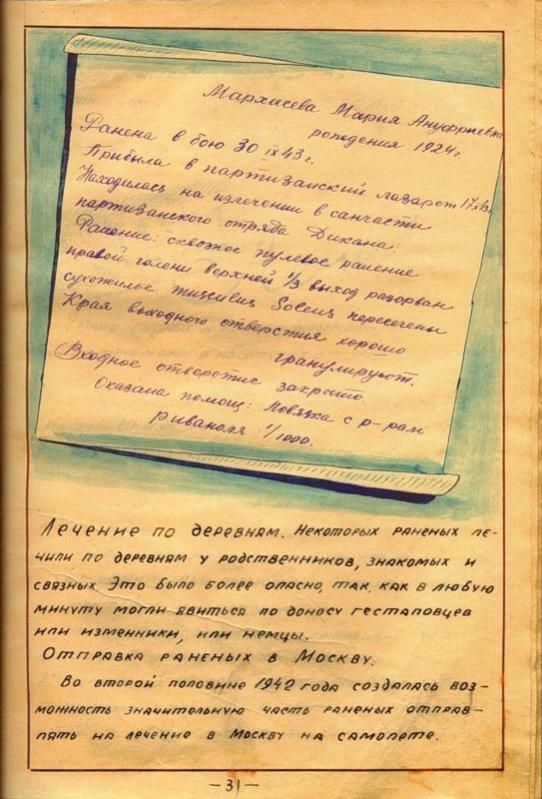 Мархасева Мария Ануфриевна
рождения 1924г.
Ранена в бою 30 IX 43 г.
Прибыла в партизанский лазарет 17 X 43г
Находилась на излечении в санчасти
партизанского отряда Дикана.
Ранение: сквозное пулевое ранение
правой голени верхней 1/3 выход разорван
сухожилие Soleus пересечены
Края выходного отверстия хорошо
гранулируют.
Входное отверстие закрыто
Оказана помощ: Повязка с р-рам
риваноля 1/1000.
Лечение по деревням. Некоторых раненых ле-
чили по деревням у родственников, знакомых и
связных. Это было более опасно, так, как в любую
минуту могли явиться по доносу гестаповцев
или изменники, или немцы.
Отправка раненых в Москву.
Во второй половине 1942 года создалась воз-
можность значительную часть раненых отправ-
лять на лечение в Москву на самолете.
-31-